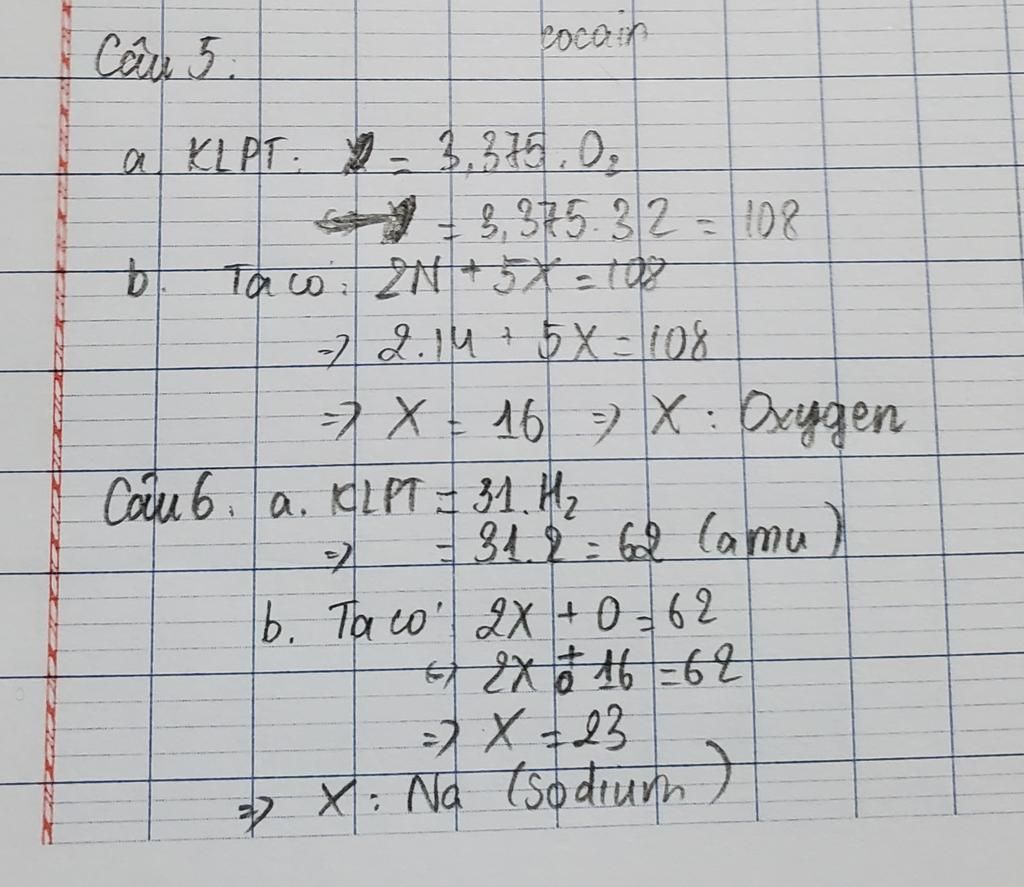 cocain
Câu 5:
a KLPT: = 3,375. O₂
= 3,375.32 = 108
b. Ta có: 2N + 5X = 108
=> 2.14 + 5X = 108
=> X = 16 => X : Oxygen
Câu 6. a. KLPT = 31.H₂
=> = 31.2 = 62 (amu)
b. Ta có: 2X + O = 62
<=> 2X + 16 = 62
=> X = 23
=> X : Na (Sodium)